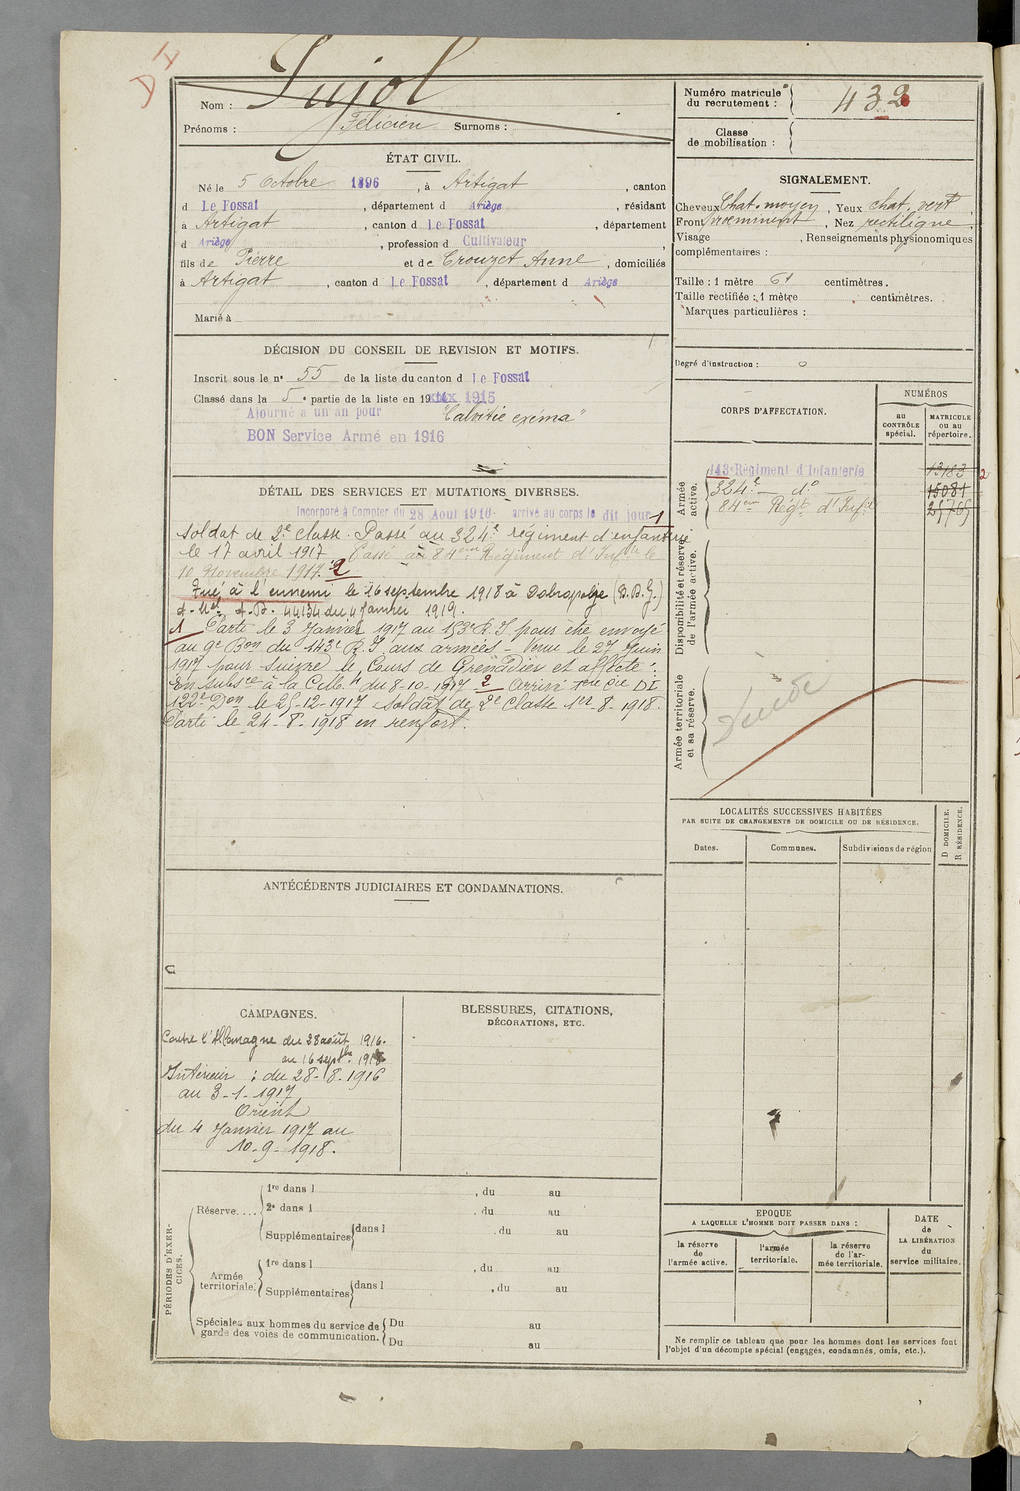 Nom : Pujol
Prénoms : Félicien Surnoms :
Numéro matricule du recrutement : 432
Classe de mobilisation :
ÉTAT CIVIL.
Né le 5 Octobre 1896, à Artigat, canton
d Le Fossat, département d Ariège, résidant
à Artigat, canton d Le Fossat, département
d Ariège, profession d Cultivateur,
fils de Pierre et de Crouzet Anne, domiciliés
à Artigat, canton d Le Fossat, département d Ariège
Marié à
SIGNALEMENT.
Cheveux Chat. moyen, Yeux chat. vert,
Front proéminent, Nez rectiligne,
Visage , Renseignements physionomiques
complémentaires :
Taille : 1 mètre 61 centimètres.
Taille rectifiée : 1 mètre centimètres.
Marques particulières :
Degré d'instruction : 0
DÉCISION DU CONSEIL DE REVISION ET MOTIFS.
Inscrit sous le n° 55 de la liste du canton d Le Fossat
Classé dans la 5e partie de la liste en 19 1915
Ajourné à un an pour "Calvitie exéma"
BON Service Armé en 1916
DÉTAIL DES SERVICES ET MUTATIONS DIVERSES.
Incorporé à Compter du 28 Août 1916 arrivé au corps le dit jour 1
Soldat de 2e classe. Passé au 324e régiment d'infanterie
le 17 avril 1917 Passé au 84eme Régiment d'Infrie le
10 Novembre 1917. 2
Tué à l'ennemi le 16 septembre 1918 à Dobropolje (B.B.G.)
A. M. A.D. 44134 du 4 Janvier 1919.
1 Parti le 3 Janvier 1917 au 153e R.I. pour être envoyé
au 9e Bon du 143e R.I aux armées - Venu le 27 Juin
1917 pour suivre le Cours de Grenadier et affecté :
En subsce à la C.M. du 8-10-1917 2 Arrivé 1ere Cie DI
122e Don le 25-12-1917 Soldat de 2e Classe 1er-8-1918.
Parti le 24-8-1918 en renfort.
CORPS D'AFFECTATION.
NUMÉROS
au CONTRÔLE spécial.
MATRICULE ou au répertoire.
Armée active.
143e Régiment d'Infanterie 13183 2
324e — do — 15081
84eme Régt d'Infrie 25765
Disponibilité et réserve de l'armée active.
Armée territoriale et sa réserve.
LOCALITÉS SUCCESSIVES HABITÉES
PAR SUITE DE CHANGEMENTS DE DOMICILE OU DE RÉSIDENCE.
Dates.
Communes.
Subdivisions de région
D DOMICILE.
R RÉSIDENCE.
ANTÉCÉDENTS JUDICIAIRES ET CONDAMNATIONS.
CAMPAGNES.
Contre l'Allemagne du 28 août 1916.
au 16 septbre 1918
Intérieur : du 28-8-1916
au 3-1-1917
Orient
du 4 Janvier 1917 au
10-9-1918.
BLESSURES, CITATIONS,
DÉCORATIONS, ETC.
PÉRIODES D'EXERCICES.
Réserve....
1re dans l , du au
2e dans l , du au
Supplémentaires dans l , du au
Armée territoriale.
1re dans l , du au
Supplémentaires dans l , du au
Spéciales aux hommes du service de garde des voies de communication.
Du au
Du au
EPOQUE
A LAQUELLE L'HOMME DOIT PASSER DANS :
la réserve de l'armée active.
l'armée territoriale.
la réserve de l'armée territoriale.
DATE de LA LIBÉRATION du service militaire.
Ne remplir ce tableau que pour les hommes dont les services font
l'objet d'un décompte spécial (engagés, condamnés, omis, etc.).